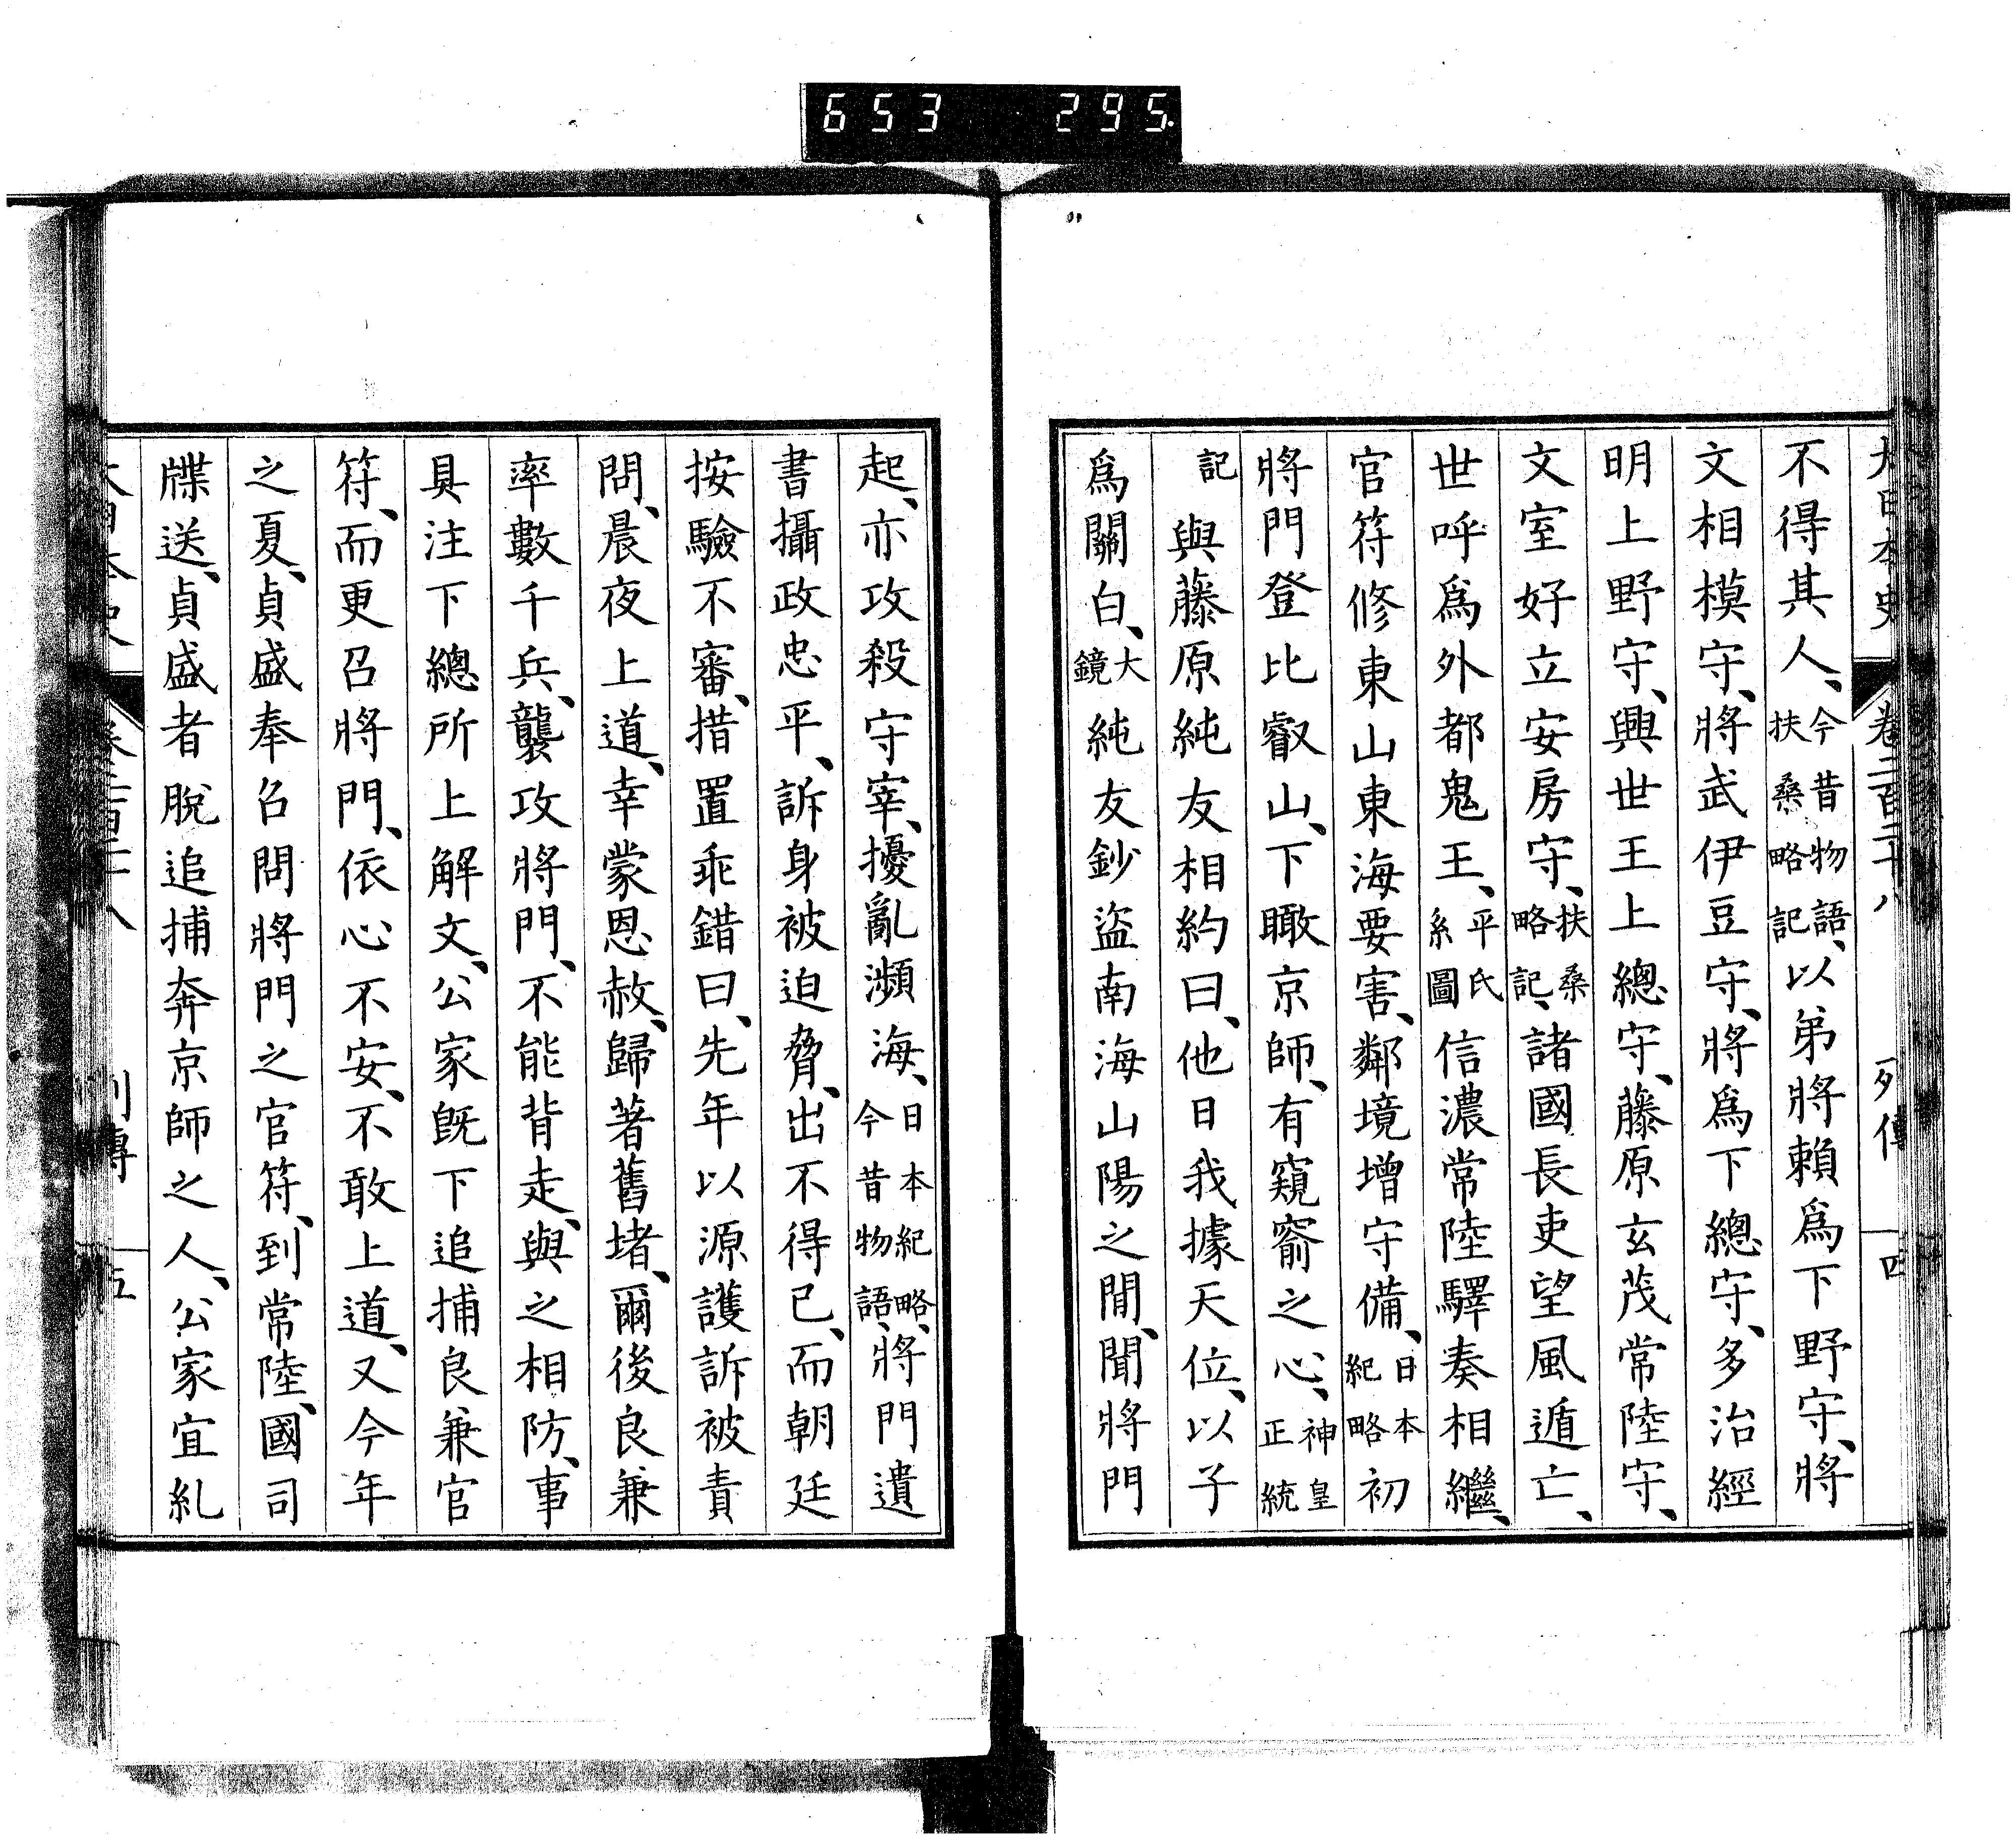 653 295.
大日本史 卷二百二十八 列傳 四
不得其人、今昔物語、扶桑略記以弟將賴爲下野守、將
文相模守、將武伊豆守、將爲下總守、多治經
明上野守、興世王上總守、藤原玄茂常陸守、
文室好立安房守、扶桑略記、諸國長吏望風遁亡、
世呼爲外都鬼王、平氏系圖信濃常陸驛奏相繼、
官符修東山東海要害、鄰境增守備、日本紀略初
將門登比叡山、下瞰京師、有窺窬之心、神皇正統
記與藤原純友相約曰、他日我據天位、以子
爲關白、大鏡純友鈔盜南海山陽之閒、聞將門
起、亦攻殺守宰、擾亂瀕海、日本紀略、今昔物語、將門遺
書攝政忠平、訴身被迫脅、出不得已、而朝廷
按驗不審、措置乖錯曰、先年以源護訴被責
問、晨夜上道、幸蒙恩赦、歸著舊堵、爾後良兼
率數千兵、襲攻將門、不能背走、與之相防、事
具注下總所上解文、公家既下追捕良兼官
符、而更召將門、依心不安、不敢上道、又今年
之夏、貞盛奉召問將門之官符、到常陸、國司
牒送、貞盛者脫追捕奔京師之人、公家宜糺
大日本史 卷二百二十八 列傳 五